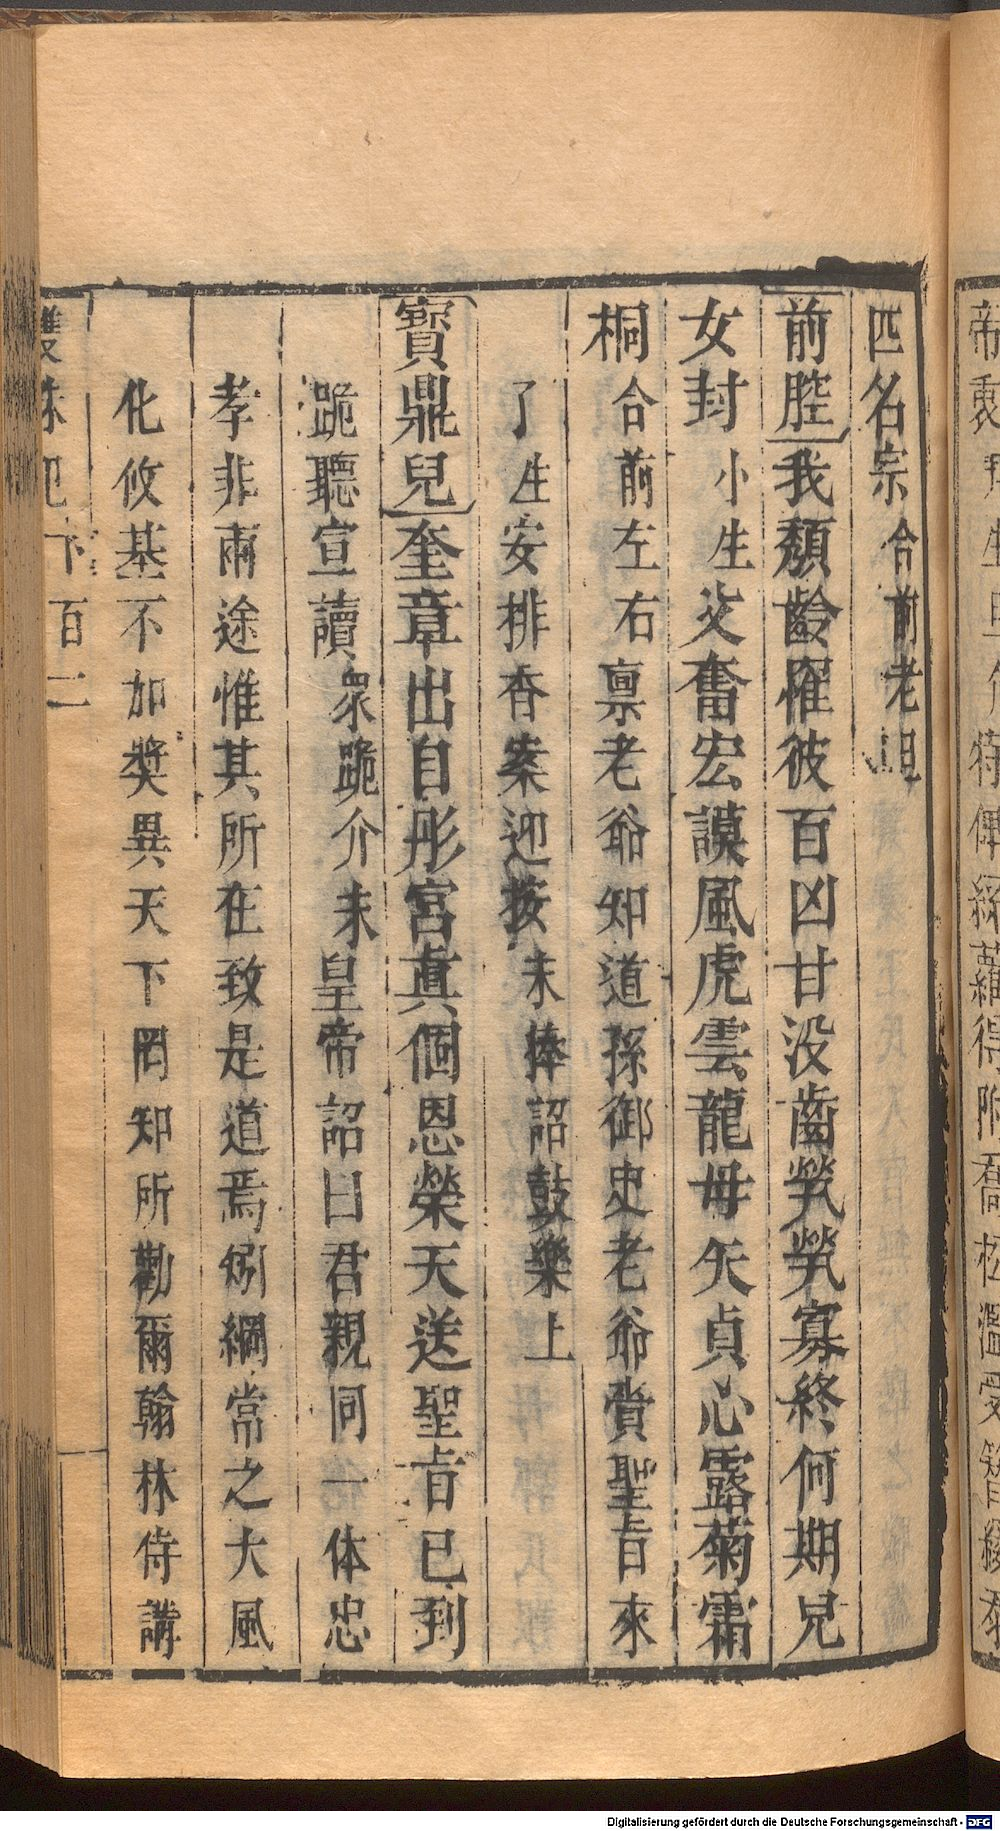 匹名宗合前老旦
前腔我頹齡罹彼百凶甘没齒煢煢寡終何期兒
女封小生父奮宏謨風虎雲龍毋矢貞心露菊霜
桐合前左右禀老爺知道孫御史老爺賫聖旨來
了生安排香案迎接末捧詔鼓樂上
寶鼎兒奎章出自彤宮眞個恩榮天送聖旨已到
跪聽宣讀衆跪介末皇帝詔曰君親同一体忠
孝非兩途惟其所在致是道焉矧綱常之大風
化攸基不加奬異天下罔知所勸爾翰林侍講
下百二
Digitalisierung gefördert durch die Deutsche Forschungsgemeinschaft - DFG